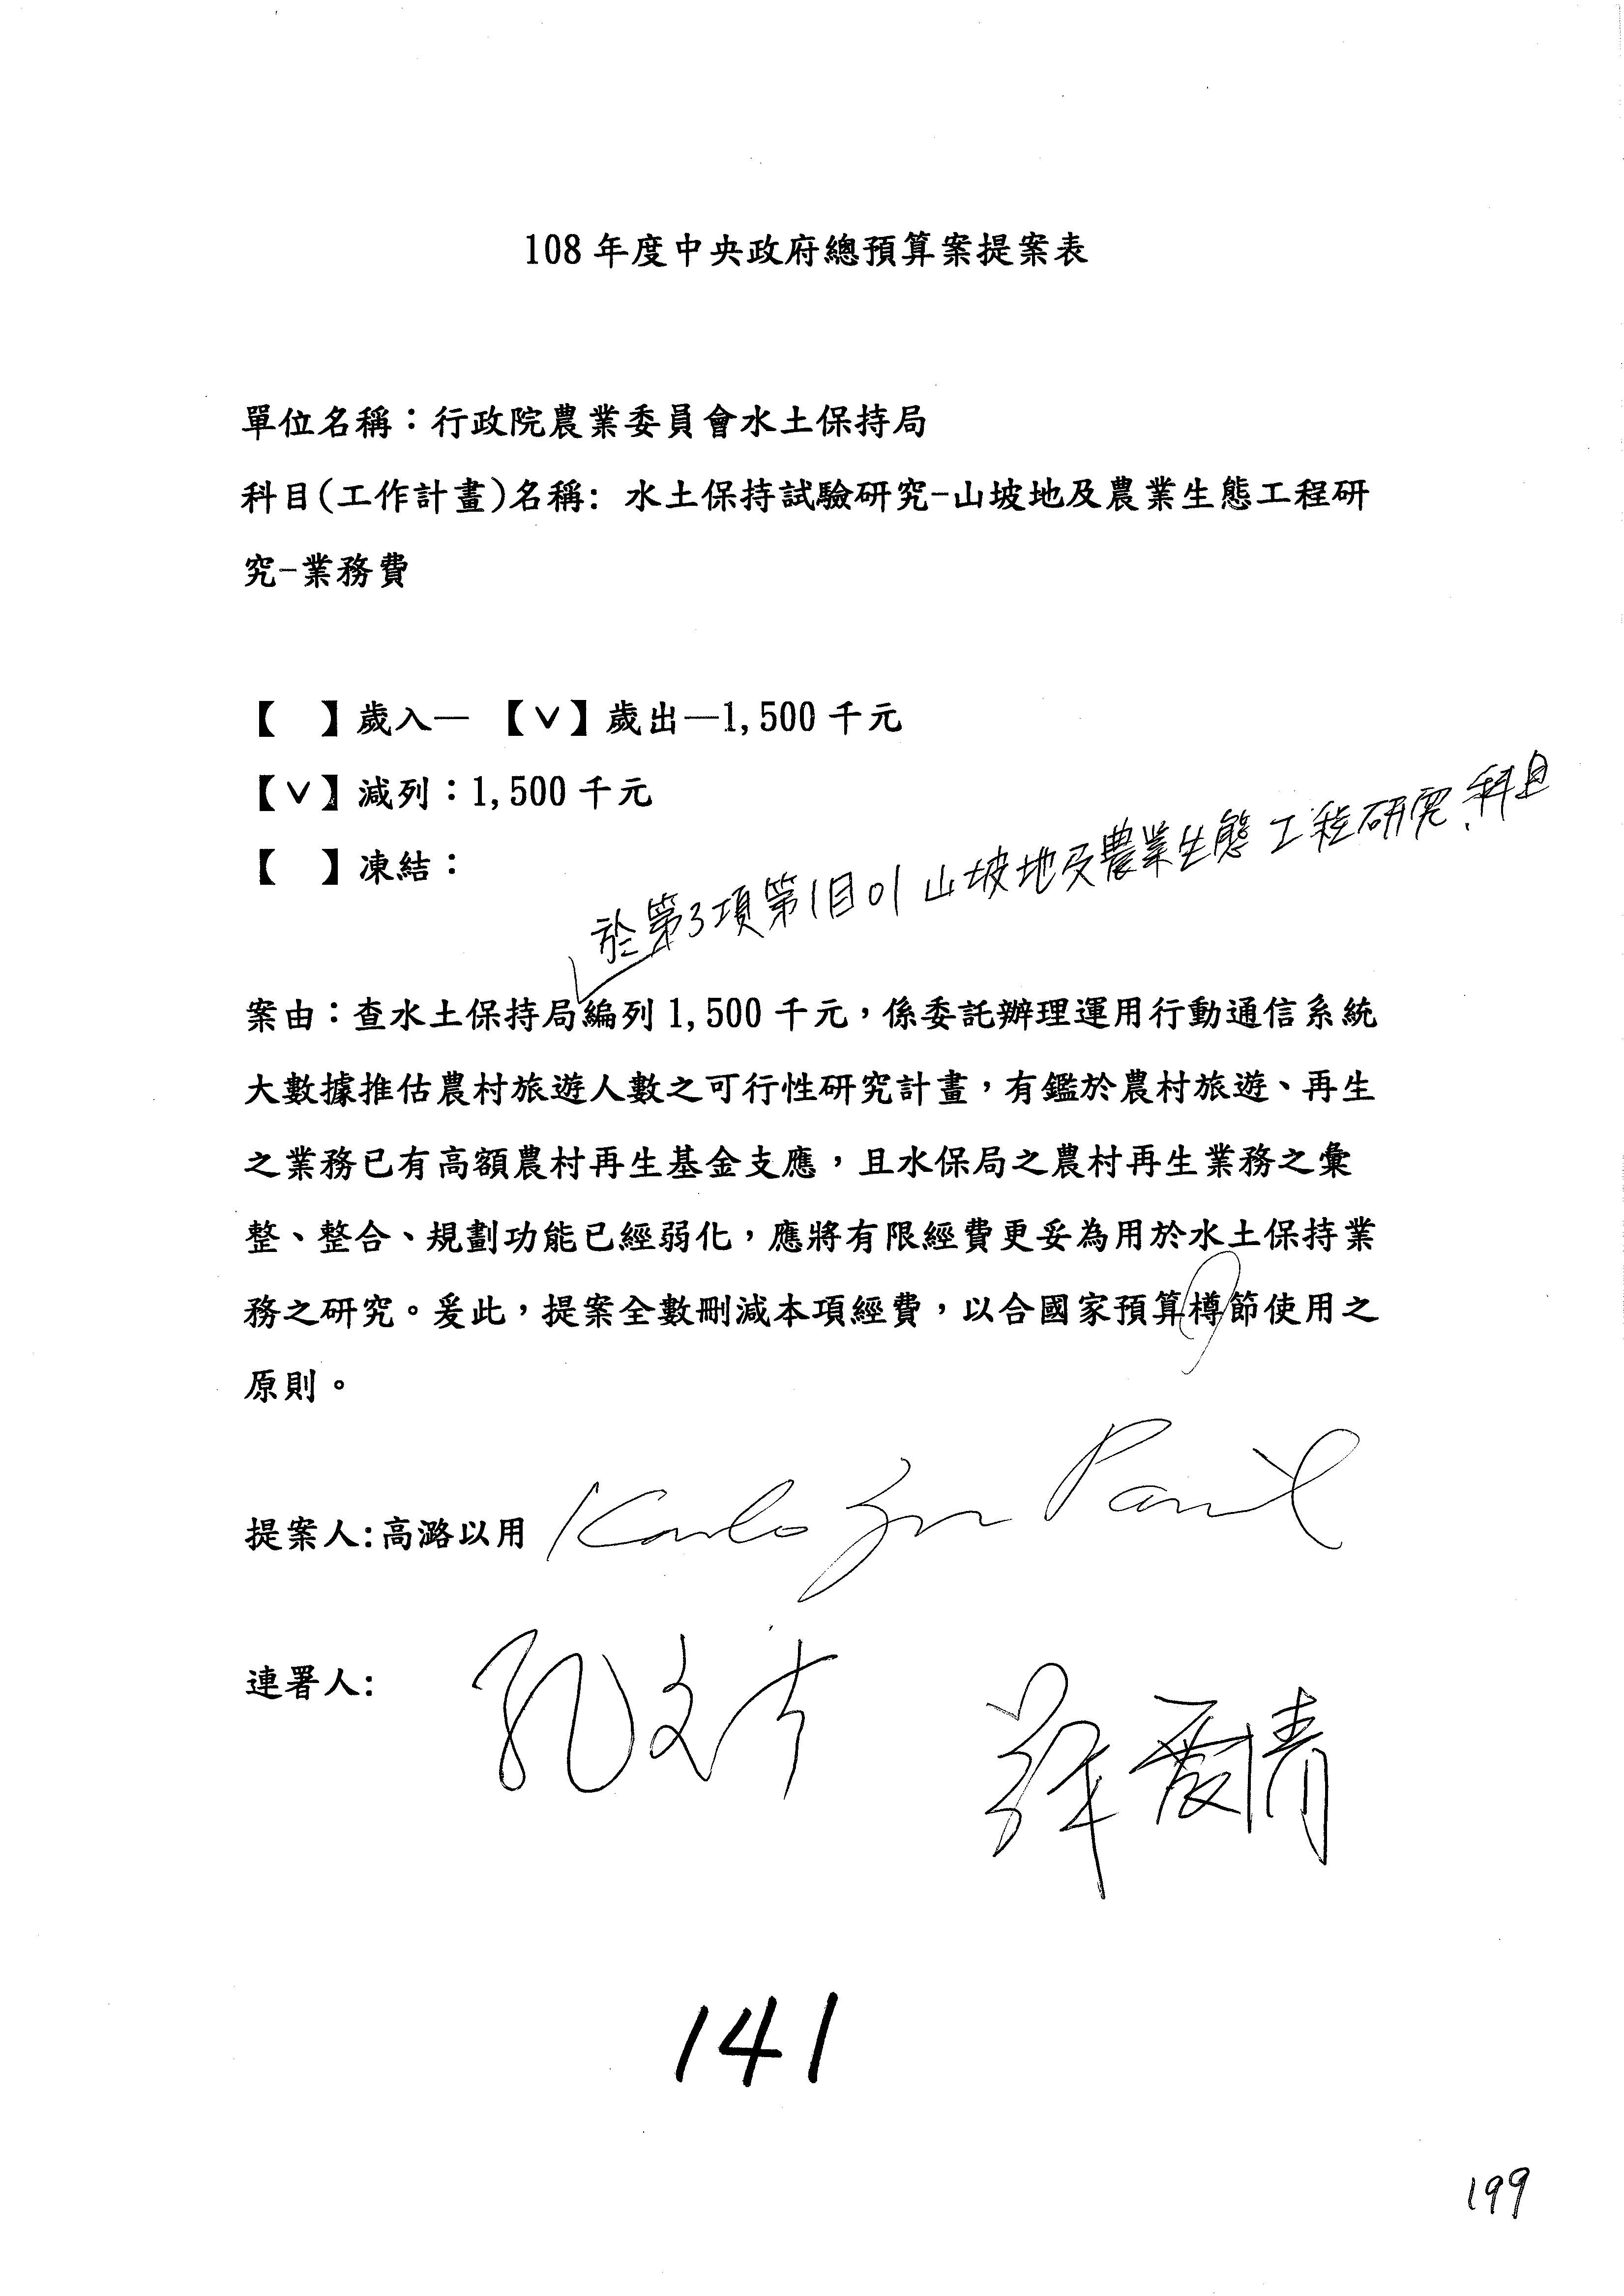 108 年度中央政府總預算案提案表
單位名稱：行政院農業委員會水土保持局
科目(工作計畫)名稱: 水土保持試驗研究-山坡地及農業生態工程研
究-業務費
【　】歲入— 【∨】歲出—1,500 千元
【∨】減列：1,500 千元
【　】凍結：
於第3項第1目01山坡地及農業生態工程研究科目
案由：查水土保持局編列 1,500 千元，係委託辦理運用行動通信系統
大數據推估農村旅遊人數之可行性研究計畫，有鑑於農村旅遊、再生
之業務已有高額農村再生基金支應，且水保局之農村再生業務之彙
整、整合、規劃功能已經弱化，應將有限經費更妥為用於水土保持業
務之研究。爰此，提案全數刪減本項經費，以合國家預算樽節使用之
原則。
提案人:高潞以用
連署人:
孔文吉
141
199